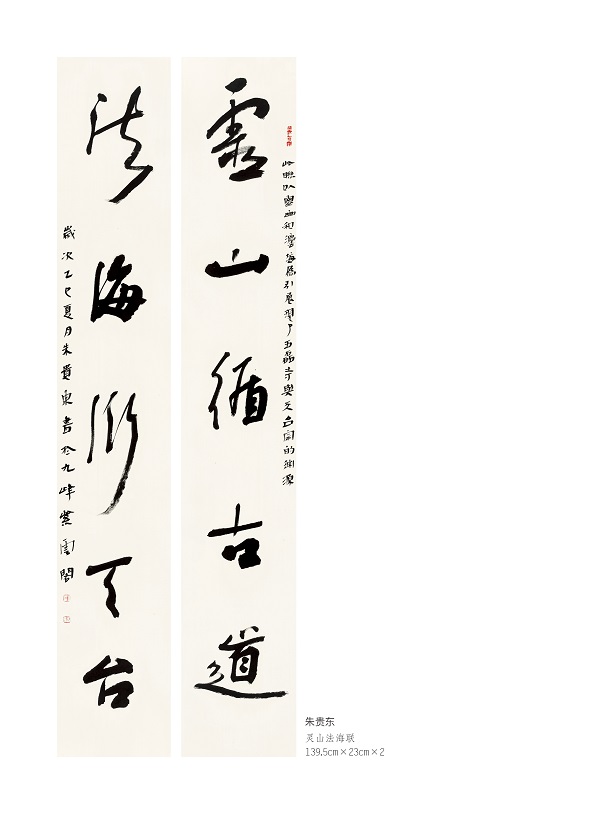 此聯以靈山和灋海為引展現了五磊寺與天台宗的淵源
靈山循古道
法海衍天台
歲次乙巳夏月朱貴東書於九峰紫雲閣
朱贵东
灵山法海联
139.5cm×23cm×2